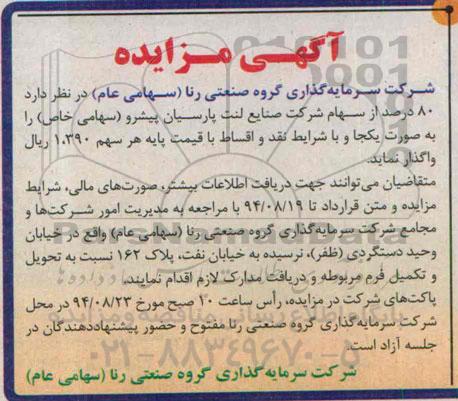 آگهی مزایده
شرکت سرمایه‌گذاری گروه صنعتی رنا (سهامی عام) در نظر دارد
۸۰ درصد از سهام شرکت صنایع لنت پارسیان پیشرو (سهامی خاص) را
به صورت یکجا و با شرایط نقد و اقساط با قیمت پایه هر سهم ۱.۳۹۰ ریال
واگذار نماید.
متقاضیان می‌توانند جهت دریافت اطلاعات بیشتر، صورت‌های مالی، شرایط
مزایده و متن قرارداد تا ۹۴/۰۸/۱۹ با مراجعه به مدیریت امور شرکت‌ها و
مجامع شرکت سرمایه‌گذاری گروه صنعتی رنا (سهامی عام) واقع در خیابان
وحید دستگردی (ظفر)، نرسیده به خیابان نفت، پلاک ۱۶۲ نسبت به تحویل
و تکمیل فرم مربوطه و دریافت مدارک لازم اقدام نمایند.
پاکت‌های شرکت در مزایده، رأس ساعت ۱۰ صبح مورخ ۹۴/۰۸/۲۳ در محل
شرکت سرمایه‌گذاری گروه صنعتی رنا مفتوح و حضور پیشنهاددهندگان در
جلسه آزاد است.
شرکت سرمایه‌گذاری گروه صنعتی رنا (سهامی عام)
۰۲۱-۸۸۳۴۹۶۷۰-۵